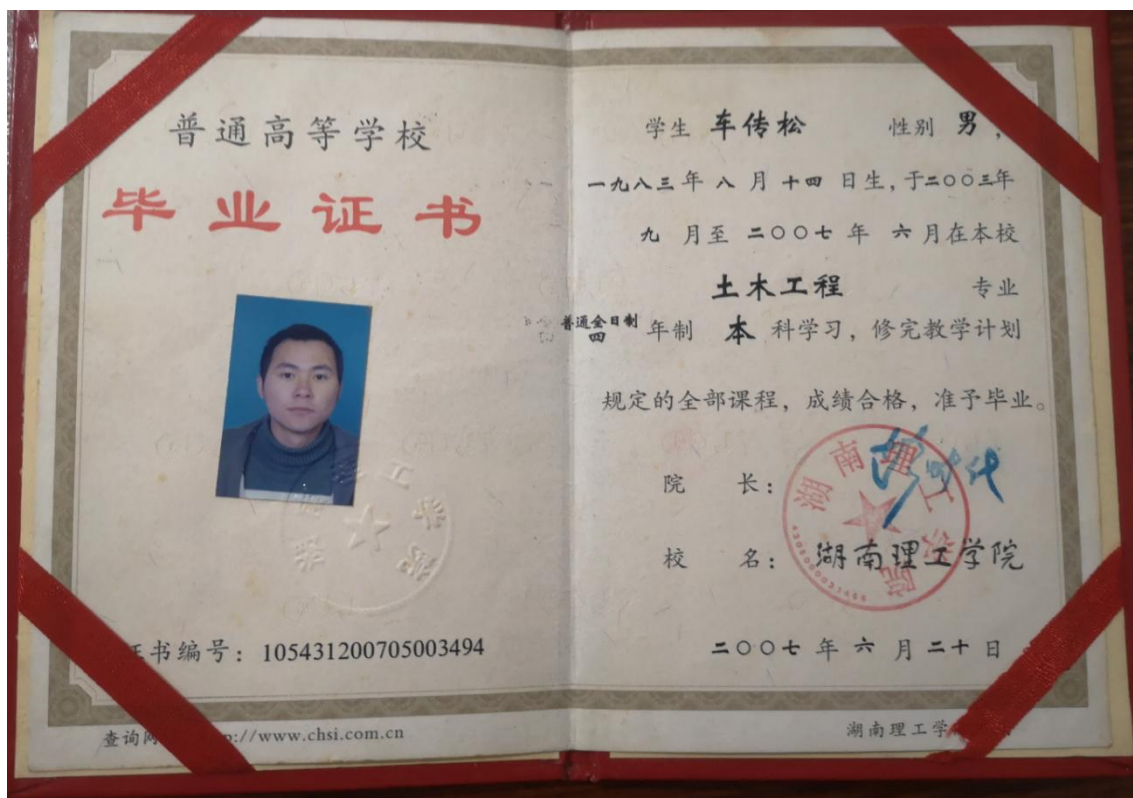 普通高等学校
毕业证书
证书编号：105431200705003494
查询网 http://www.chsi.com.cn
学生 车传松 性别 男，
一九八三年 八 月 十四 日生，于二〇〇三年
九 月至 二〇〇七 年 六 月在本校
土木工程 专业
普通全日制
四 年制 本 科学习，修完教学计划
规定的全部课程，成绩合格，准予毕业。
院 长：
校 名：湖南理工学院
湖南理工学院
二〇〇七 年 六 月 二十 日
湖南理工学